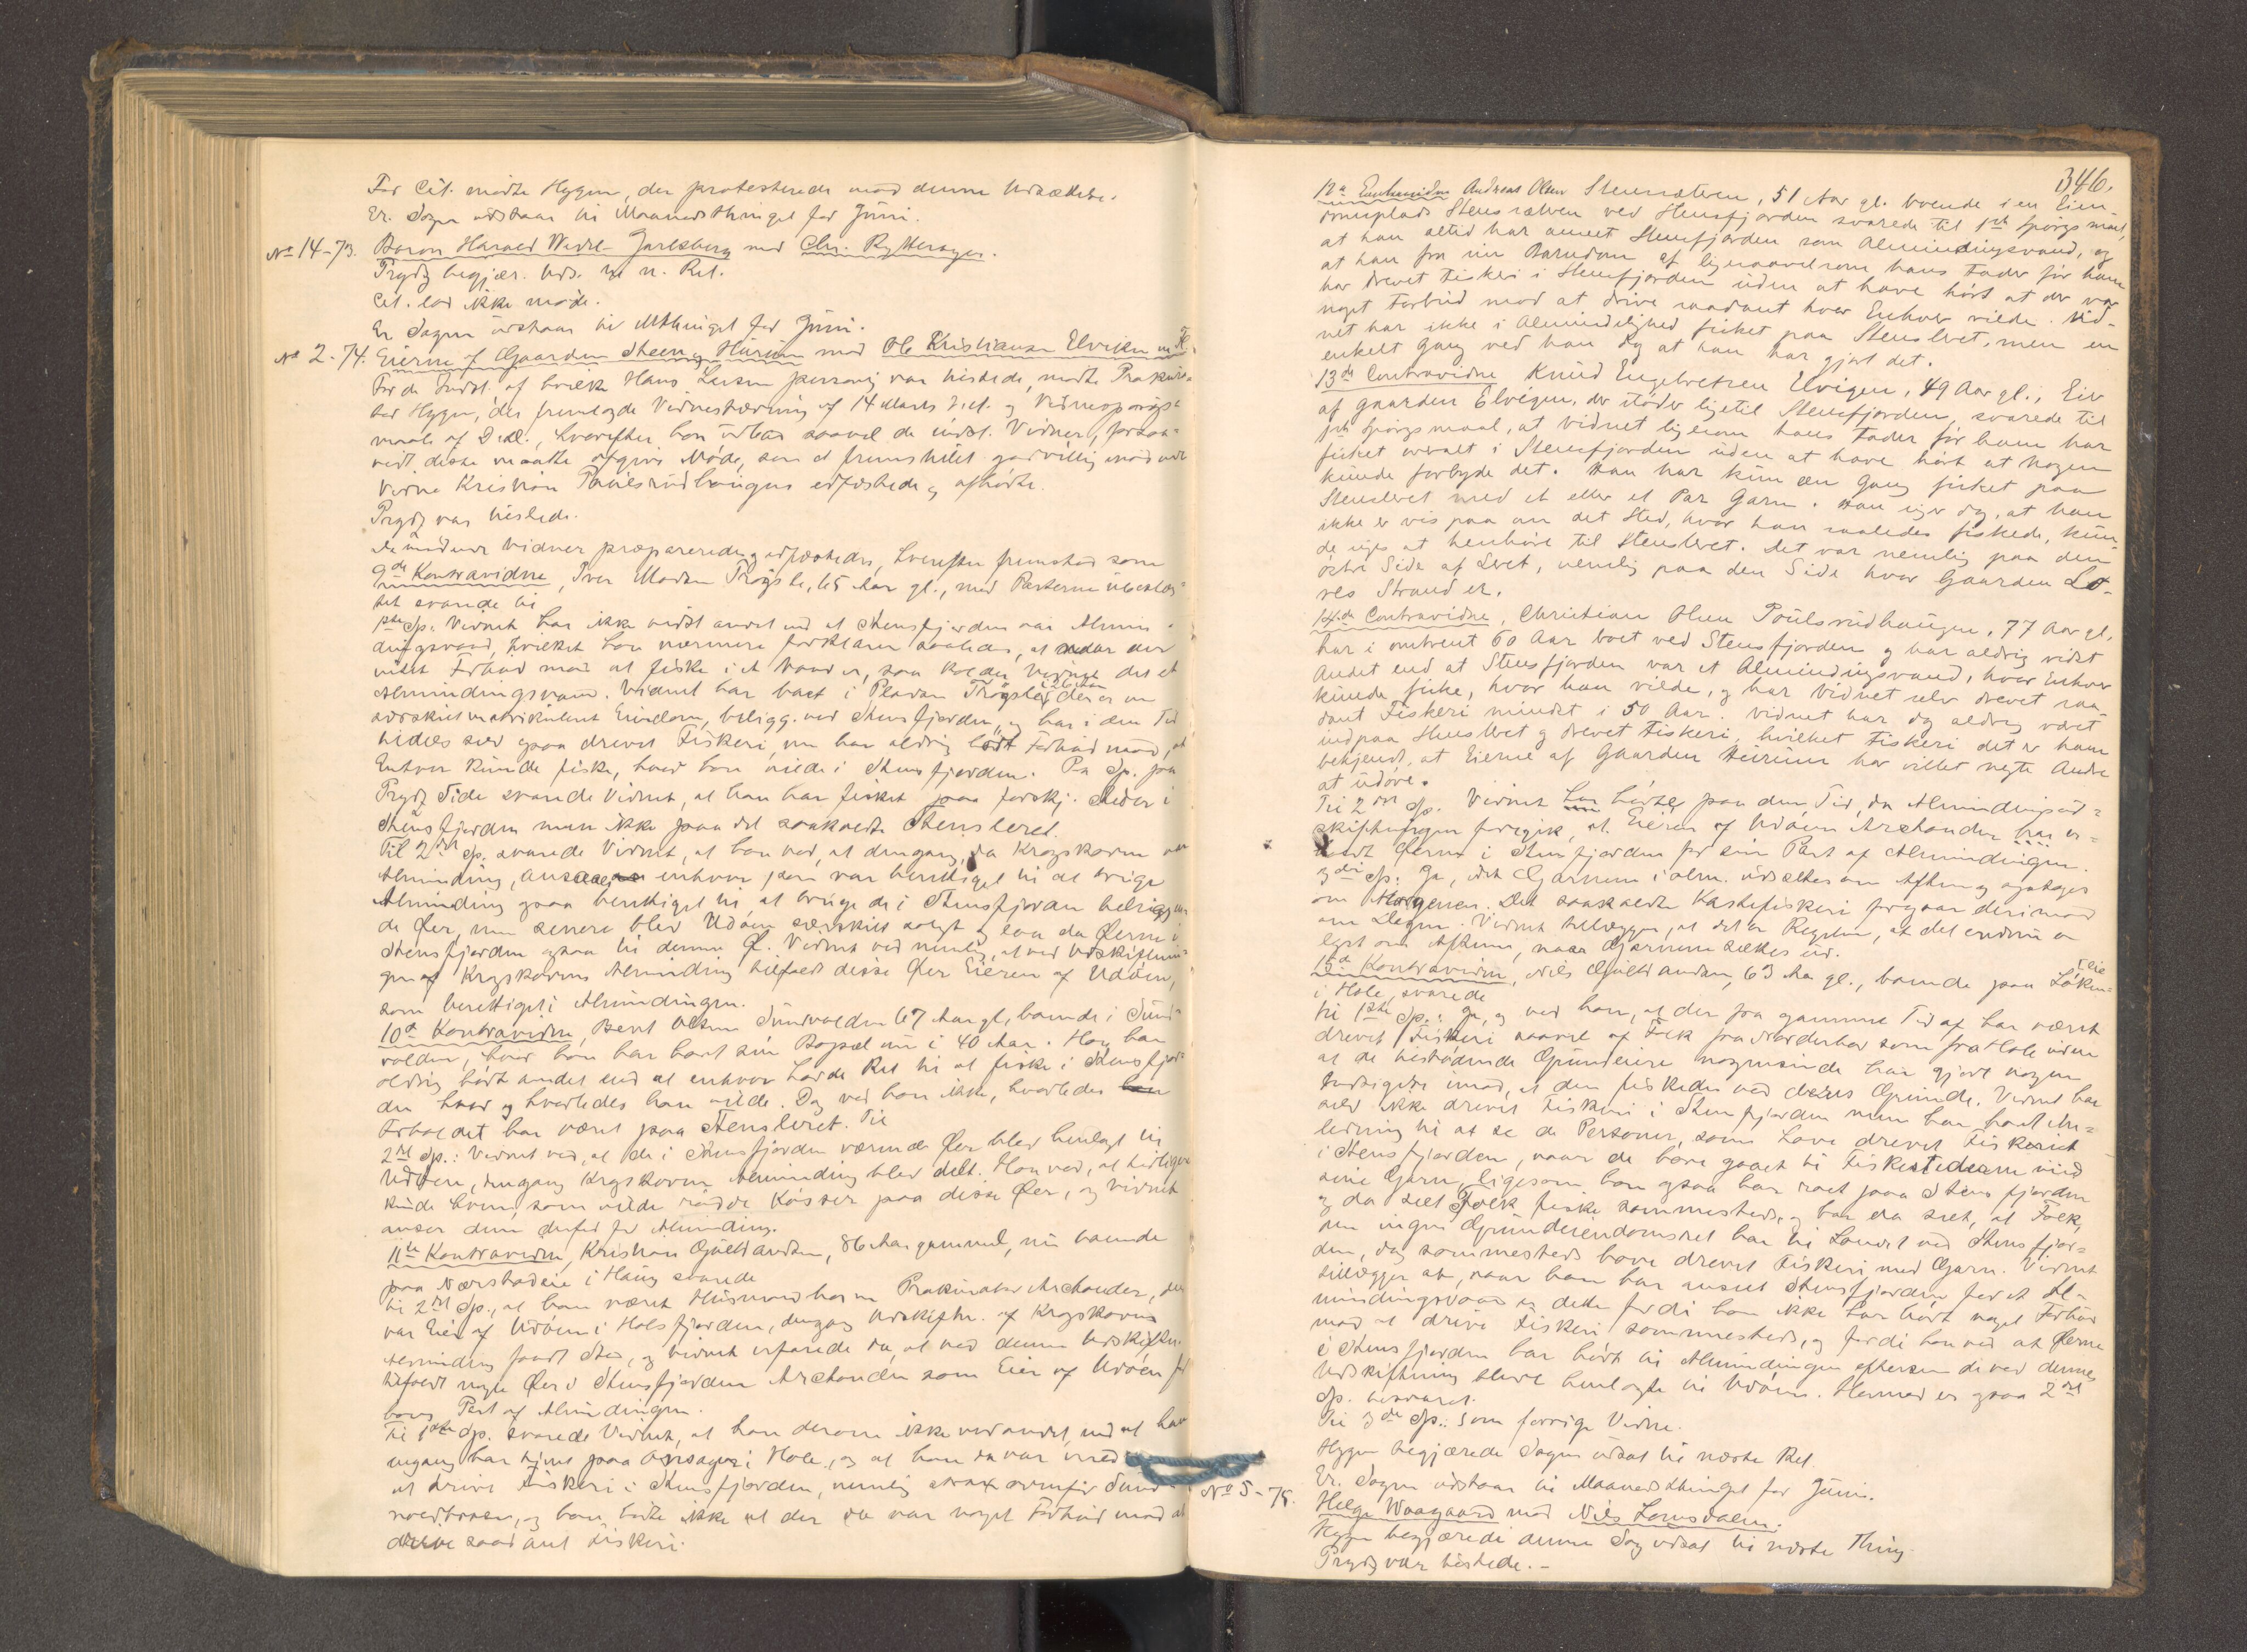 For Cit. mødte Hygen, der protesterede mod denne Udsættelse.
Er. Sagen udstaar til Maanedsthinget for Juni.
No 14-73. Baron Harald Wedel Jarlsberg mod Chr. Rytterager.
Prydz begjær. Uds. til n. Ret.
Cit. lod ikke møde.
Er. Sagen udstaar til Mthinget for Juni.
No 2-74. Eierne af Gaarden Steen og Hurum mod Ole Kristiansen Elviken m. Fl.
For de Indst. af hvilke Hans Larsen personlig var tilstede, mødte Prokura-
tor Hygen, der fremlagde Vidnestævning af 14 Marts d. A. og Vidnespørgs-
maale af D.D., hvorefter han udbad saavel de indst. Vidner, forsaa-
vidt disse maatte afgive Møde, som et fremstillet godvillig mødende
Vidne Kristian Paulsrudhaugen edfæstede og afhørte.
Prydz var tilstede.
De mødende Vidner præpareredes og edfæstedes, hvorefter fremstod som
9de Kontravidne, Iver Madsen Trøgsle, 65 Aar gl., med Parterne ubeslæg-
tet svarede til
1ste Sp. Vidnet har ikke vidst andet end at Stensfjorden var Almin-
dingsvand, hvilket han nærmere forklarer saaledes, at naar der
intet Forbud mod at fiske i et Vand er, saa kalder Vidnet det et
Almindingsvand. Vidnet har boet i Pladsen Trøgsle i 26 Aar der er en
særskilt matrikuleret Eiendom, beligg. ved Stensfjorden, og har i den Tid
tildels selv ogsaa drevet Fiskeri, men har aldrig hørt Forbud mod, at
Enhver kunde fiske, hvad han vilde i Stensfjorden. Paa Sp. fra
Prydz Side svarede Vidnet, at han har fisket paa forskj. Steder i
Stensfjorden men ikke paa det saakaldte Stensleret.
Til 2det Sp. svarede Vidnet, at han ved, at dengang, da Krogskoven var
Alminding, ansaaes enhver som var berettiget til at bruge
Alminding ogsaa berettiget til at bruge de i Stensfjorden beliggen-
de Øer, men senere blev Udøen særskilt solgt og laa da Øerne i
Stensfjorden ogsaa til denne Ø. Vidnet ved nemlig, at ved Udskiftnin-
gen af Krogskovens Alminding tilfaldt disse Øer Eieren af Udøen,
som berettiget i Almindingen.
10de Kontravidne, Bent Olsen Sundvolden 67 Aar gl., boende i Sund-
volden, hvor han har havt sin Bopæl nu i 40 Aar. Han har
aldrig hørt andet end at enhver havde Ret til at fiske i Stensfjor-
den hvor og hvorledes han vilde. Dog ved han ikke, hvorledes
Forholdet har været paa Stensleret. Til
2det Sp.: Vidnet ved, at de i Stensfjorden værende Øer blev henlagt til
Udøen, dengang Krogskovens Alminding blev delt. Han ved, at tidligere
kunde hvem, som vilde rødde Kosser paa disse Øer, og Vidnet
anser dem derfor for Alminding.
11te Kontravidne, Kristian Gulbrandsen, 86 Aar gammel, nu boende
paa Nærstadeie i Haug svarede
til 2det Sp., at han været Husmand hos en Prokurator Arctander, der
var Eier af Udøen i Holsfjorden, dengang Udskiftn. af Krogskovens
Alminding fandt Sted, og Vidnet erfarede da, at ved denne Udskiftn.
tilfaldt nogle Øer i Stensfjorden Arctander som Eier af Udøen for
hans Part af Almindingen.
Til 1ste Sp. svarede Vidnet, at han derom ikke ved andet, end at han
engang har tjent paa Onsager i Hole, og at han da var med
at drive Fiskeri i Stensfjorden, nemlig strax ovenfor Sund-
voldbroen, og han hørte ikke at der da var noget Forbud mod at
drive saadant Fiskeri.
346.
12te Contravidne Andreas Olsen Stensrætven, 51 Aar gl. boende i en Eien-
domsplads Stensrætven ved Stensfjorden svarede til 1ste Spørgsmaal,
at han altid har anseet Stensfjorden som Almindingsvand, og
at han fra sin Barndom af ligesaavel som hans Fader før ham
har drevet Fiskeri i Stensfjorden uden at have hørt at der var
noget Forbud mod at drive saadant hvor Enhver vilde. Vid-
net har ikke i Almindelighed fisket paa Stensleret, men en
enkelt Gang ved han dog at han har gjort det.
13de Contravidne Knud Engebretsen Elvigen, 49 Aar gl., Eier
af gaarden Elvigen, der støder ligetil Stensfjorden, svarede til
1ste Spørgsmaal, at Vidnet ligesom hans Fader før ham har
fisket overalt i Stensfjorden uden at have hørt at Nogen
kunde forbyde det. Han har kun een Gang fisket paa
Stensleret med et eller et Par Garn. Han siger dog, at han
ikke er vis paa om det Sted, hvor han saaledes fiskede, kun-
de siges at henhøre til Stensleret. Det var nemlig paa den
østre Side af Leret, nemlig paa den Side hvor Gaarden Lo-
res Strand er.
14de Contravidne, Christian Olsen Poulsrudhaugen, 77 Aar gl.
har i omtrent 60 Aar boet ved Stensfjorden og har aldrig vidst
Andet end at Stensfjorden var et Almindingsvand, hvor Enhver
kunde fiske, hvor han vilde, og har Vidnet selv drevet saa-
dant Fiskeri mindst i 50 Aar. Vidnet har dog aldrig været
indpaa Stensleret og drevet Fiskeri, hvilket Fiskeri det er ham
bekjendt, at Eierne af Gaarden Heirum har villet negte Andre
at udøve.
Til 2det Sp. Vidnet har hørte paa den Tid, da Almindingsud-
skiftningen foregik, at Eieren af Udøen Arctander har er-
holdt Øerne i Stensfjorden for sin Part af Almindingen.
3die Sp: Ja, idet Garnene i alm. udsættes om Aften og optages
om Morgenen. Det saakaldte Kastefiskeri foregaar derimod
om Dagen. Vidnet tillægger, at det er Regelen, at det endnu er
lyst om Aftenen, naar Garnene sættes ud.
15de Kontravidne, Nils Gulbrandsen, 63 Aar gl., boende paa Løken-
eie i Hole, svarede
til 1ste Sp.: Ja, og ved han, at der fra gammel Tid af har været
drevet Fiskeri saavel af Folk fra Norderhov som fra Hole uden
at de tilstødende Grundeiere nogensinde har gjort nogen
Indsigelse imod, at den fiskedes ved deres Grunde. Vidnet har
selv ikke drevet Fiskeri i Stensfjorden men har havt An-
ledning til at se de Personer, som have drevet Fiskeriet
i Stensfjorden, naar de have gaaet til Fiskestederne med
sine Garn, ligesom han ogsaa har roet paa Stensfjorden
og da seet Folk fiske sommesteds, og har da seet, at Folk,
som ingen Grundeiendomsret har til Landet ved Stensfjor-
den, dog sommesteds have drevet Fiskeri med Garn. Vidnet
tillægger at, naar han har anseet Stensfjorden for et Al-
mindingsvand er dette fordi han ikke har hørt noget Forbud
mod at drive Fiskeri sommesteds, og fordi han ved at Øerne
i Stensfjorden har hørt til Almindingen eftersom de ved dennes
Udskiftning bleve henlagte til Udøen. Hermed er ogsaa 2det
Sp. besvaret.
Til 3die Sp.: som forrige Vidne.
Hygen begjærede Sagen udsat til næste Ret.
Er. Sagen udstaar til Maanedsthinget for Juni.
No 5-75. Helge Waagaard mod Nils Lomsdalen.
Hygen begjærede denne Sag udsat til næste Thing.
Prydz var tilstede.-